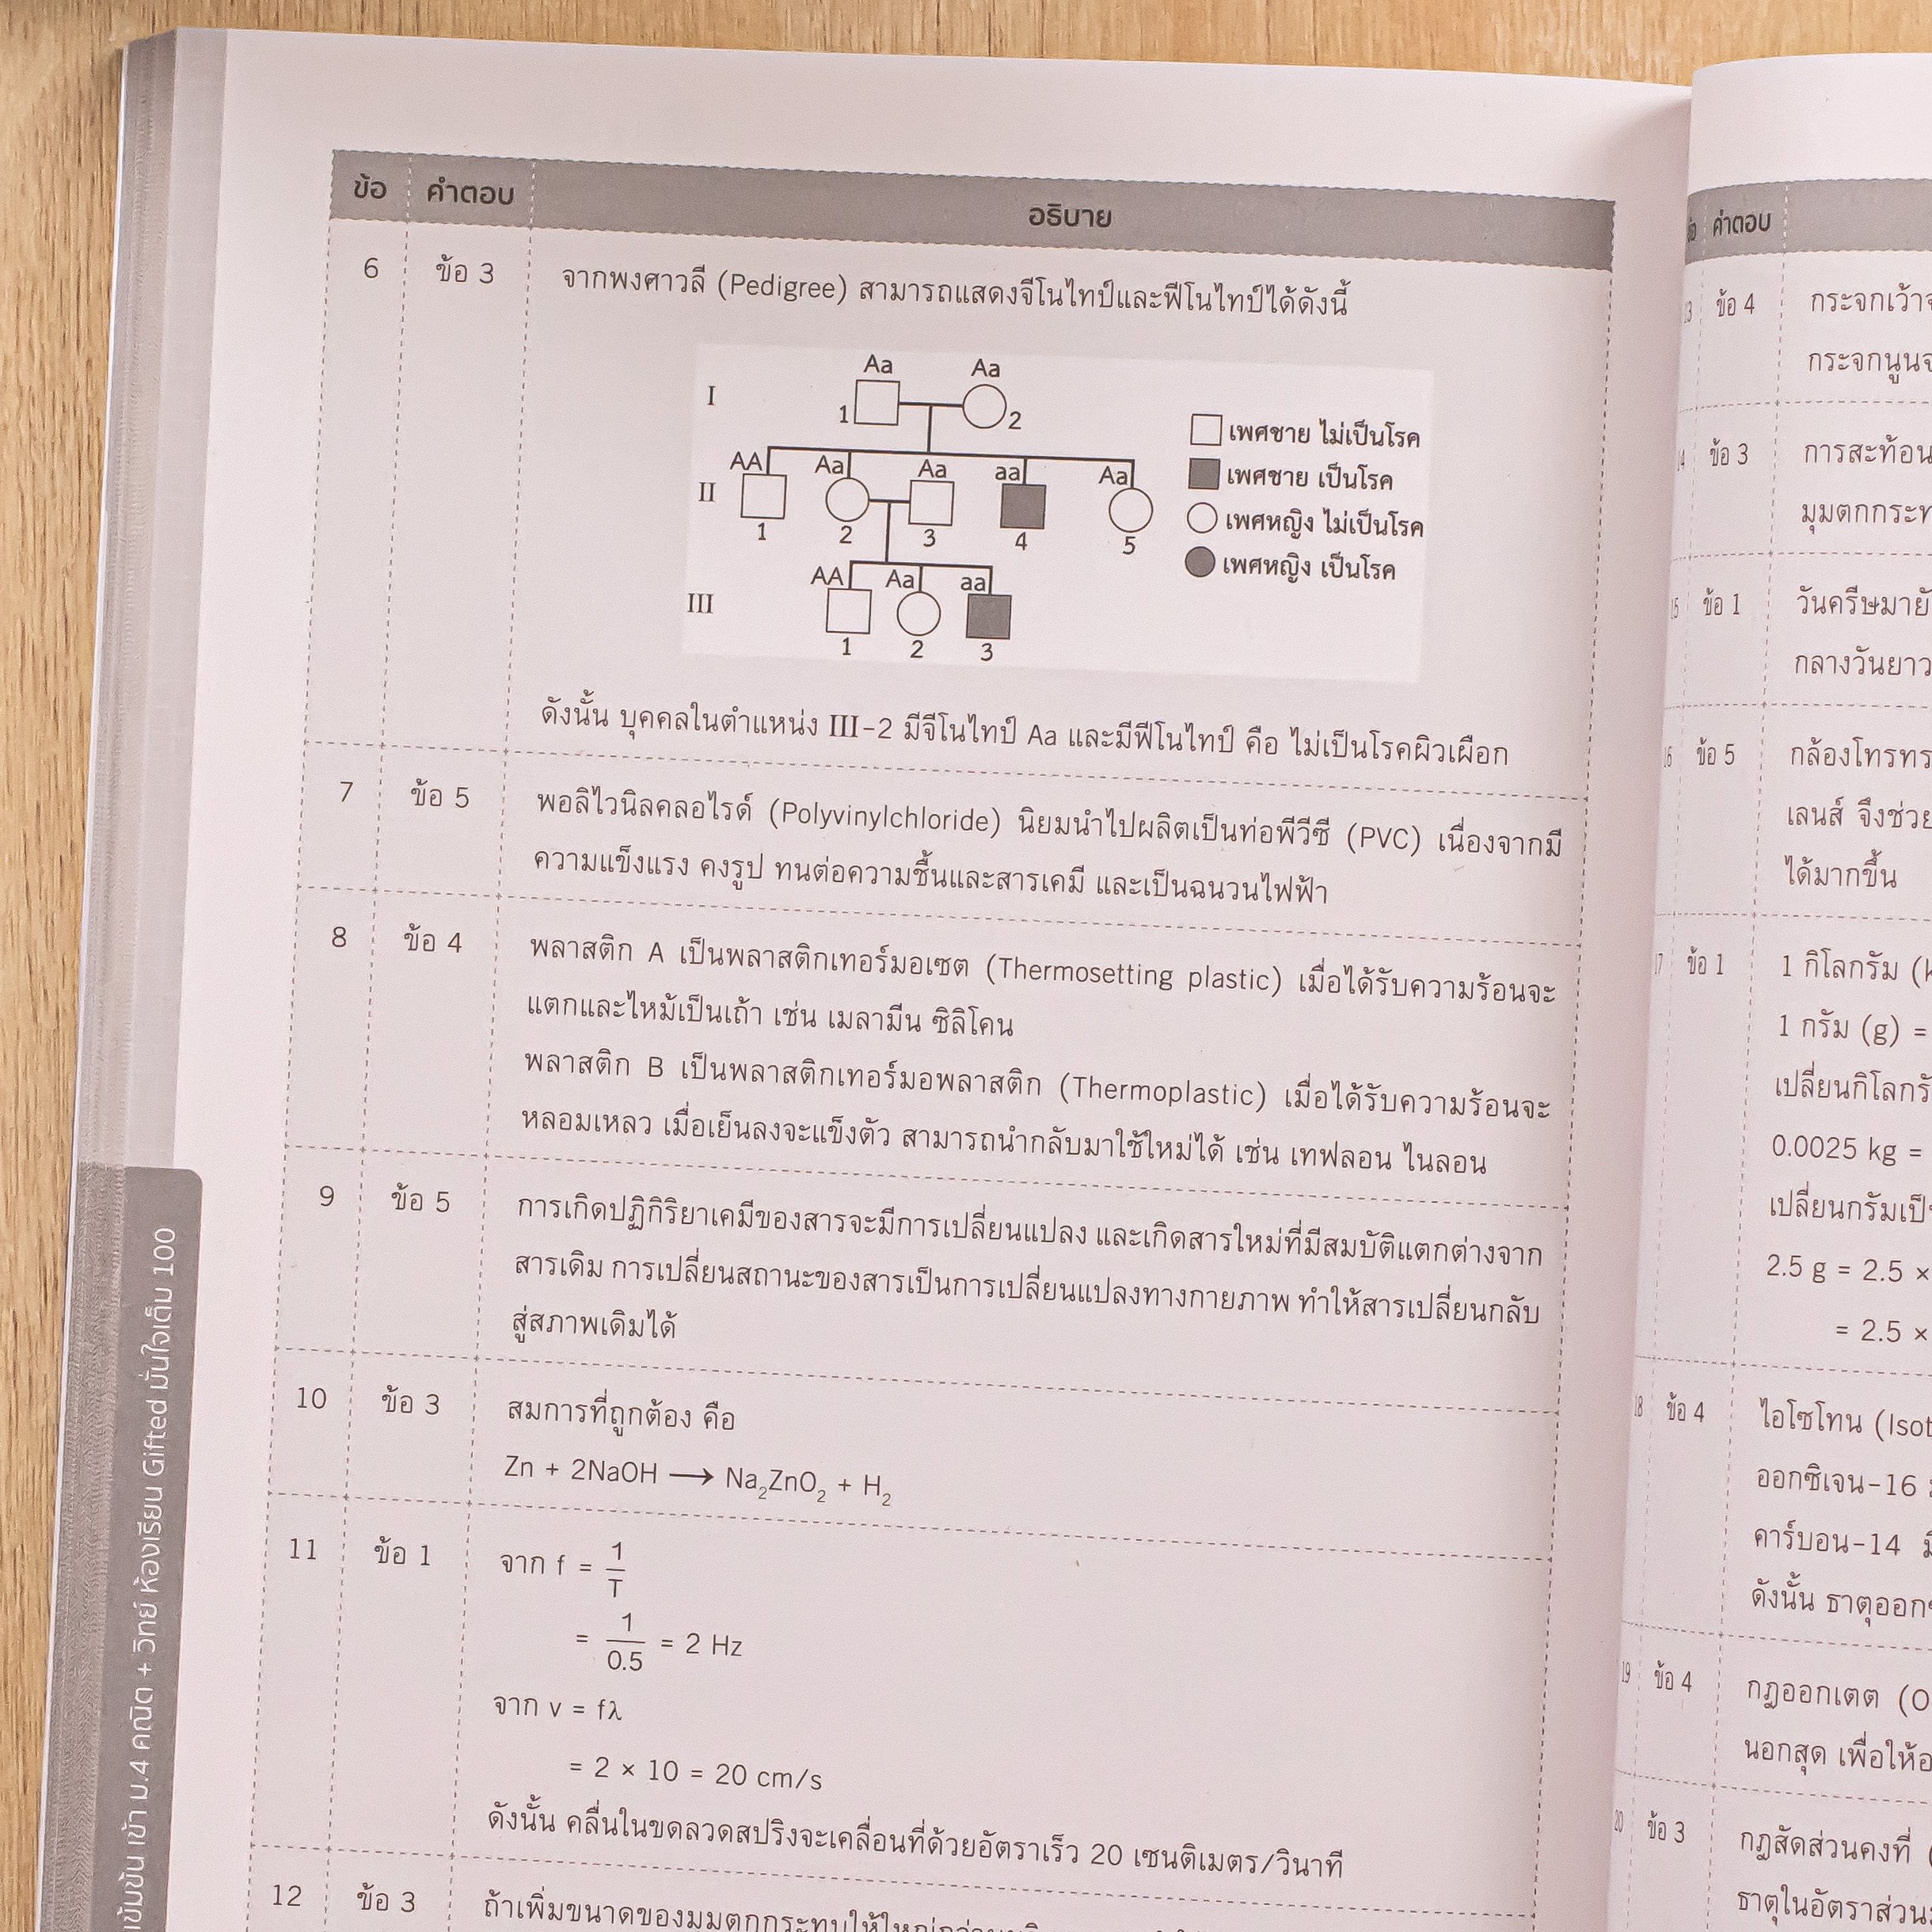 ข้อ คำตอบ อธิบาย
6 ข้อ 3 จากพงศาวลี (Pedigree) สามารถแสดงจีโนไทป์และฟีโนไทป์ได้ดังนี้
Aa Aa
I 1 2
AA Aa Aa aa Aa
II
1 2 3 4 5
AA Aa aa
III
1 2 3
เพศชาย ไม่เป็นโรค
เพศชาย เป็นโรค
เพศหญิง ไม่เป็นโรค
เพศหญิง เป็นโรค
ดังนั้น บุคคลในตำแหน่ง III-2 มีจีโนไทป์ Aa และมีฟีโนไทป์ คือ ไม่เป็นโรคผิวเผือก
7 ข้อ 5 พอลิไวนิลคลอไรด์ (Polyvinylchloride) นิยมนำไปผลิตเป็นท่อพีวีซี (PVC) เนื่องจากมี
ความแข็งแรง คงรูป ทนต่อความชื้นและสารเคมี และเป็นฉนวนไฟฟ้า
8 ข้อ 4 พลาสติก A เป็นพลาสติกเทอร์มอเซต (Thermosetting plastic) เมื่อได้รับความร้อนจะ
แตกและไหม้เป็นเถ้า เช่น เมลามีน ซิลิโคน
พลาสติก B เป็นพลาสติกเทอร์มอพลาสติก (Thermoplastic) เมื่อได้รับความร้อนจะ
หลอมเหลว เมื่อเย็นลงจะแข็งตัว สามารถนำกลับมาใช้ใหม่ได้ เช่น เทฟลอน ไนลอน
9 ข้อ 5 การเกิดปฏิกิริยาเคมีของสารจะมีการเปลี่ยนแปลง และเกิดสารใหม่ที่มีสมบัติแตกต่างจาก
สารเดิม การเปลี่ยนสถานะของสารเป็นการเปลี่ยนแปลงทางกายภาพ ทำให้สารเปลี่ยนกลับ
สู่สภาพเดิมได้
10 ข้อ 3 สมการที่ถูกต้อง คือ
Zn + 2NaOH → Na₂ZnO₂ + H₂
11 ข้อ 1 จาก f = 1/T
= 1/0.5 = 2 Hz
จาก v = fλ
= 2 × 10 = 20 cm/s
ดังนั้น คลื่นในขดลวดสปริงจะเคลื่อนที่ด้วยอัตราเร็ว 20 เซนติเมตร/วินาที
12 ข้อ 3
เข้มข้น เข้า ม.4 คณิต + วิทย์ ห้องเรียน Gifted มั่นใจเต็ม 100
คำตอบ
13 ข้อ 4 กระจกเว้า
กระจกนูน
14 ข้อ 3 การสะท้อน
มุมตกกระท
15 ข้อ 1 วันครีษมายั
กลางวันยาว
16 ข้อ 5 กล้องโทรทร
เลนส์ จึงช่วย
ได้มากขึ้น
17 ข้อ 1 1 กิโลกรัม (k
1 กรัม (g) =
เปลี่ยนกิโลกรั
0.0025 kg =
เปลี่ยนกรัมเป็
2.5 g = 2.5 ×
= 2.5 ×
18 ข้อ 4 ไอโซโทน (Isot
ออกซิเจน-16
คาร์บอน-14
ดังนั้น ธาตุออก
19 ข้อ 4 กฎออกเตต (O
นอกสุด เพื่อให้
20 ข้อ 3 กฎสัดส่วนคงที่ (
ธาตุในอัตราส่วน